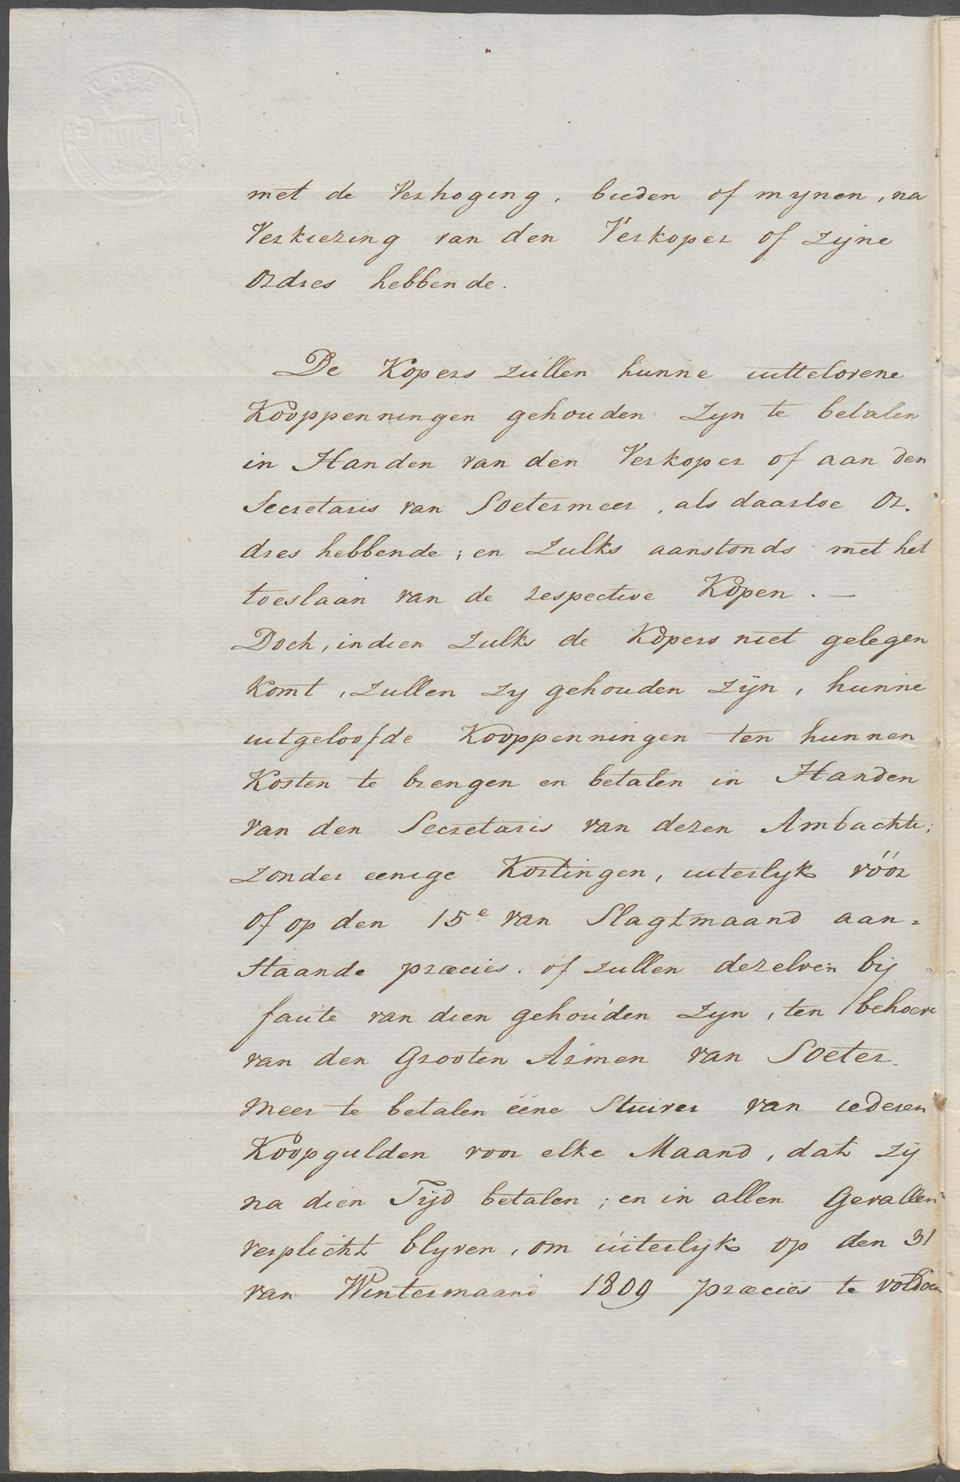 met de Verhoging, bieden of mynen, na
Verkiezing van den Verkoper of zijne
Ordres hebbende.
De Kopers zullen hunne uittelovene
Kooppenningen gehouden zyn te betalen
in Handen van den Verkoper of aan den
Secretaris van Soetermeer, als daartoe Or-
dres hebbende; en zulks aanstonds met het
toeslaan van de respective Kopen. —
Doch, indien zulks de Kopers niet gelegen
komt, zullen zy gehouden zijn, hunne
uitgeloofde Kooppenningen ten hunnen
Kosten te brengen en betalen in Handen
van den Secretaris van dezen Ambachte;
zonder eenige Kortingen, uiterlyk vóór
of op den 15e van Slagtmaand aan=
staande præcies. of zullen dezelven bij
faute van dien gehouden zyn, ten behoeve
van den Grooten Armen van Soeter-
meer te betalen eene Stuiver van iederen
Koopgulden voor elke Maand, dat zij
na dien Tijd betalen; en in allen Gevallen
verplicht blyven, om uiterlyk op den 31
van Wintermaand 1809 præcies te voldoen